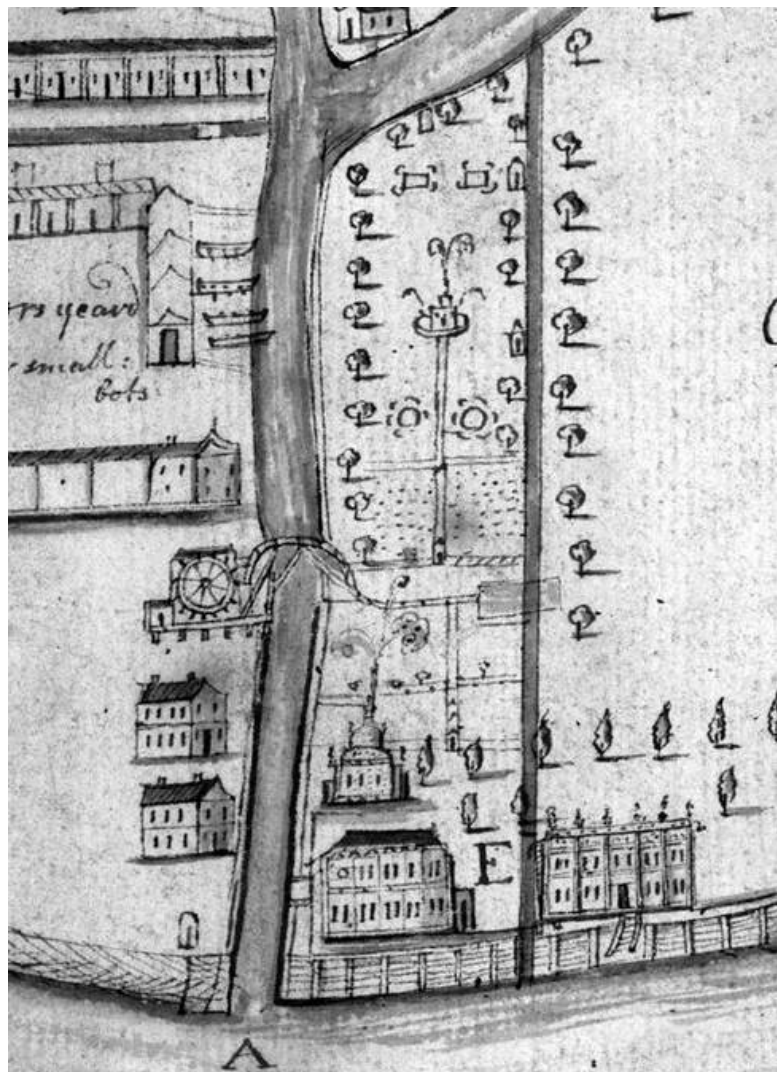 rs yeard
small:
bots
E
A